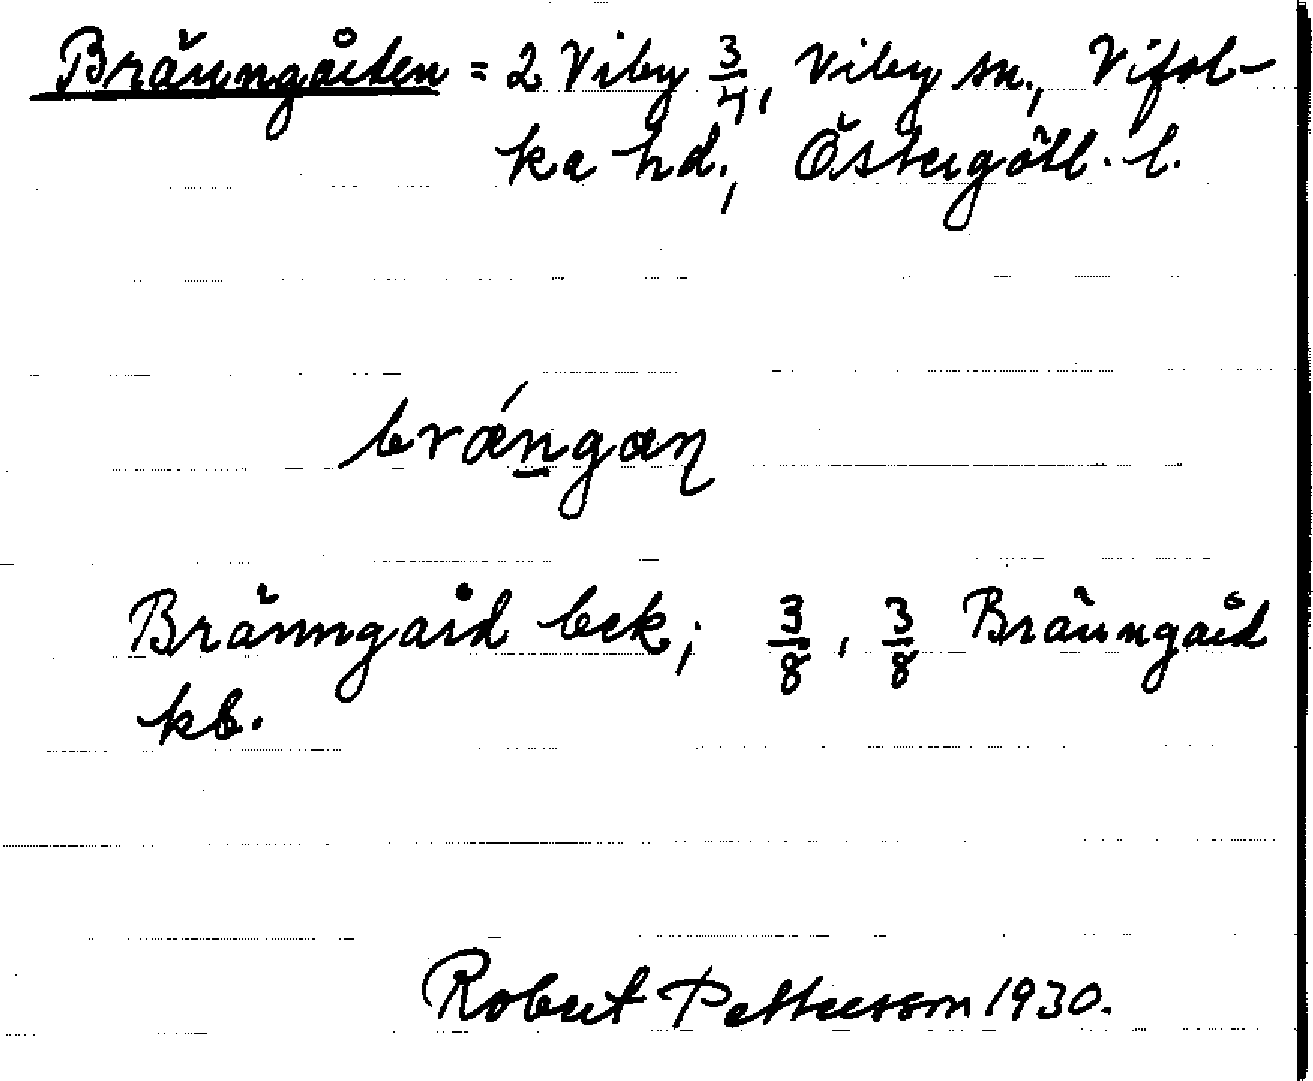 Bränngården = 2 Viby 3/4, Viby sn., Vifol-
ka hd., Östergötl. l.
brǽn̲gæn
Bränngård bek; 3/8, 3/8 Bränngård
kb.
Robert Pettersson 1930.